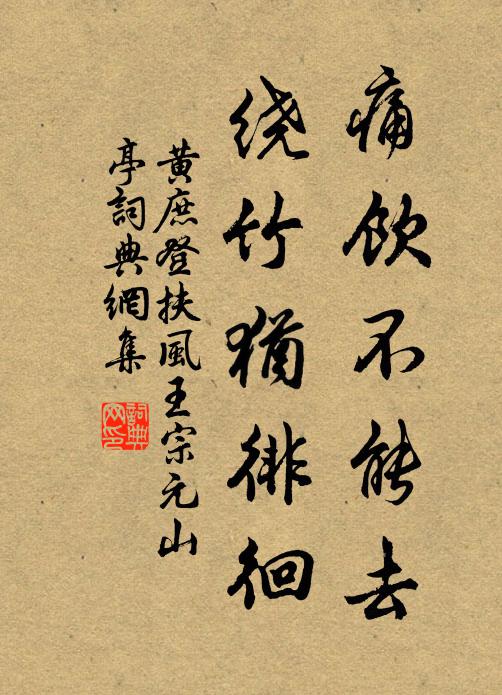 痛饮不能去
绕竹犹徘徊
黄庶登扶風王宗元山
亭詞典網集
詞典
网印